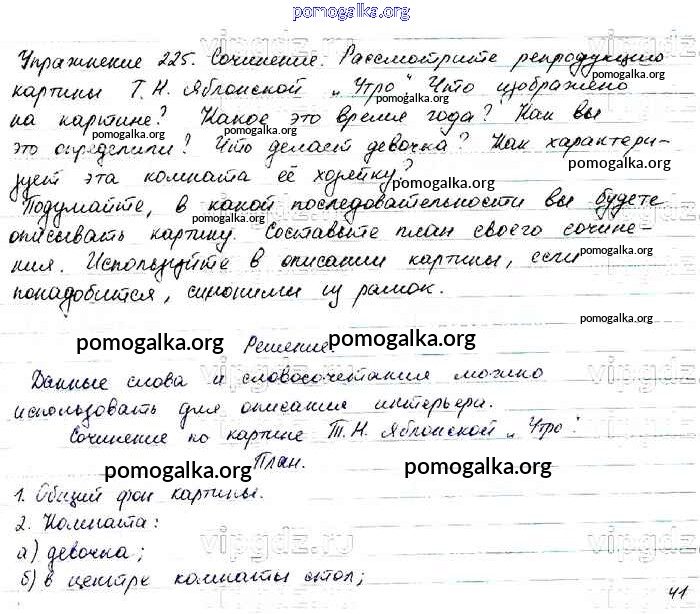 pomogalka.org
Упражнение 225. Сочинение. Рассмотрите репродукцию
картины Т. Н. Яблонской „Утро“ Что изображено
pomogalka.org
на картине? Какое это время года? Как вы
pomogalka.org pomogalka.org
это определили? Что делает девочка? Как характери-
pomogalka.org pomogalka.org
зует эта комната её хозяйку?
pomogalka.org
Подумайте, в какой последовательности вы будете
pomogalka.org
описывать картину. Составьте план своего сочине-
pomogalka.org
ния. Используйте в описании картины, если
понадобится, синонимы из рамок.
pomogalka.org
pomogalka.org Решение. pomogalka.org
vipgdz.ru vipgdz
Данные слова и словосочетания можно
использовать для описания интерьера.
Сочинение по картине Т. Н. Яблонской „Утро“.
План.
pomogalka.org pomogalka.org
1. Общий фон картины.
2. Комната:
vipgdz.ru vipgdz
а) девочка;
б) в центре комнаты стол;
41